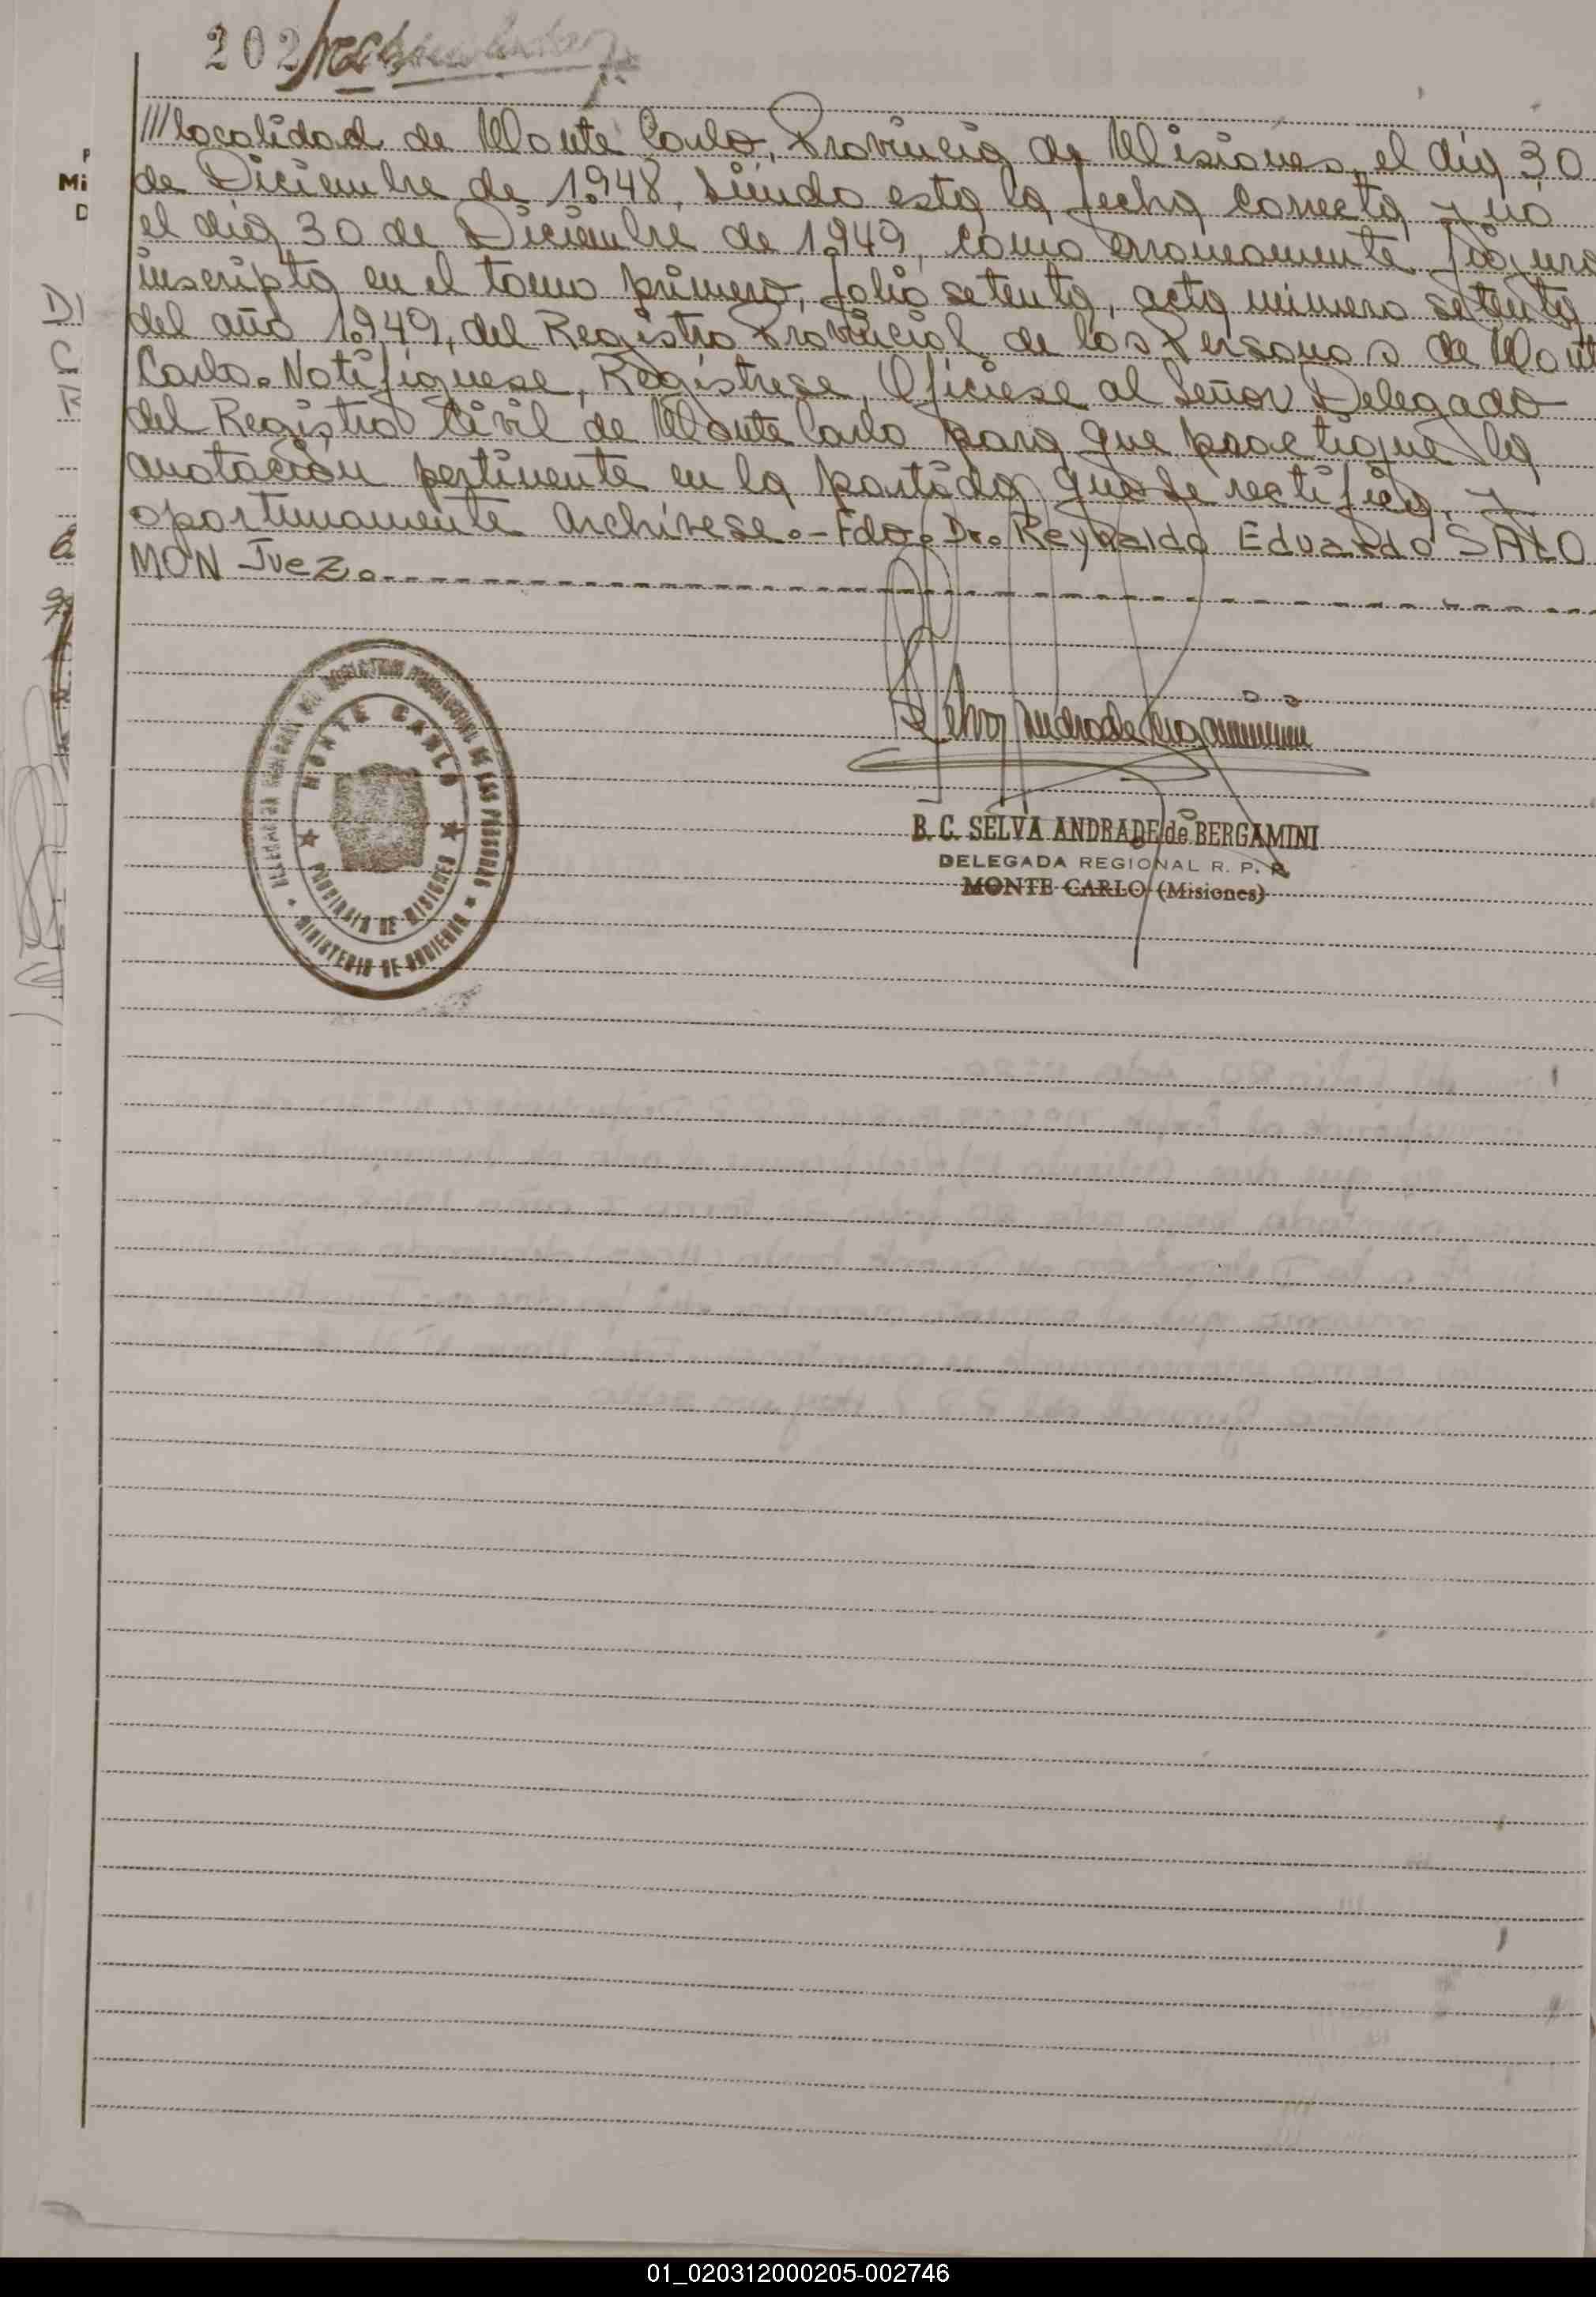 202
///localidad de Monte Carlo, Provincia de Misiones, el día 30
de Diciembre de 1.948, siendo esta la fecha correcta y no
el día 30 de Diciembre de 1.949, como erroneamente figura
inscripta en el tomo primero, folio setenta, acta número setenta
del año 1.949, del Registro Provincial de las Personas de Monte
Carlo. Notifíquese, Regístrese, Ofíciese al Señor Delegado
del Registro Civil de Monte Carlo para que practique la
anotación pertinente en la partida que se rectifica, y
oportunamente archívese.- Fdo. Dr. Reynaldo Eduardo SALO
MON Juez.
DELEGACION REGIONAL DEL REGISTRO PROVINCIAL DE LAS PERSONAS
MONTE CARLO
PROVINCIA DE MISIONES
MINISTERIO DE GOBIERNO
Selva Andrade Bergamini
B. C. SELVA ANDRADE de BERGAMINI
DELEGADA REGIONAL R. P. P.
MONTE CARLO (Misiones)
Mi
01_020312000205-002746